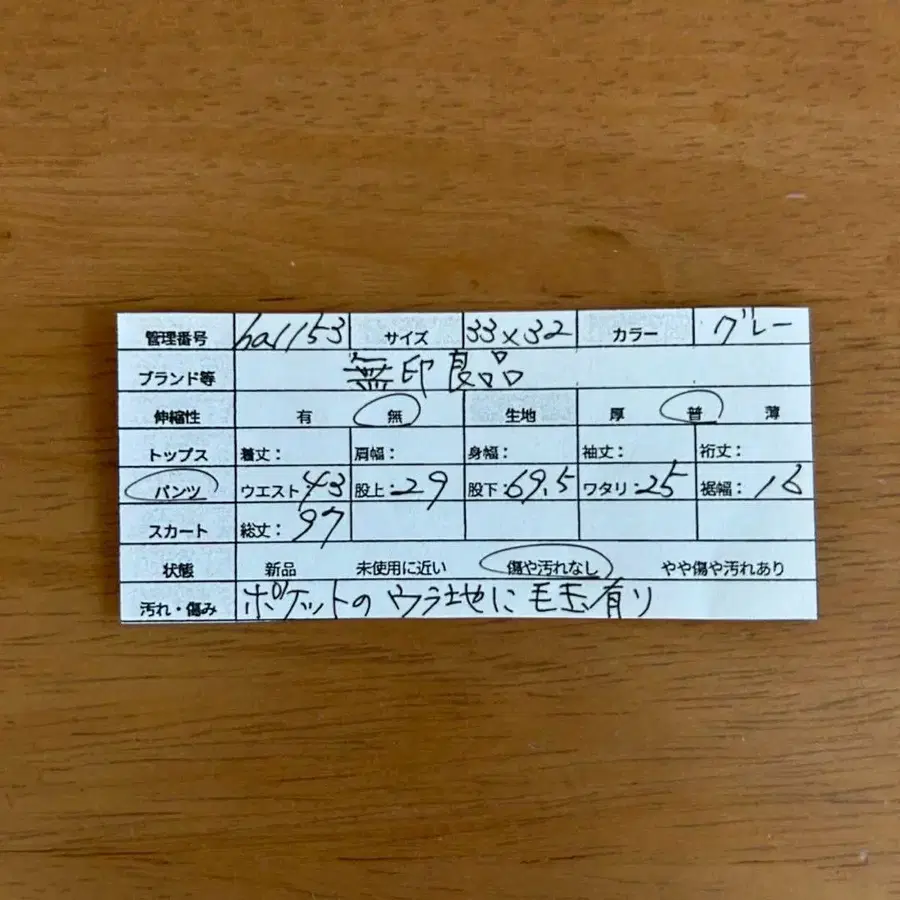 管理番号 har153 サイズ 33×32 カラー グレー
ブランド等 無印良品
伸縮性 有 無 生地 厚 普 薄
トップス 着丈： 肩幅： 身幅： 袖丈： 裄丈：
パンツ ウエスト：43 股上：29 股下：69.5 ワタリ：25 裾幅：18
スカート 総丈：97
状態 新品 未使用に近い 傷や汚れなし やや傷や汚れあり
汚れ・傷み ポケットのウラ地に毛玉有り